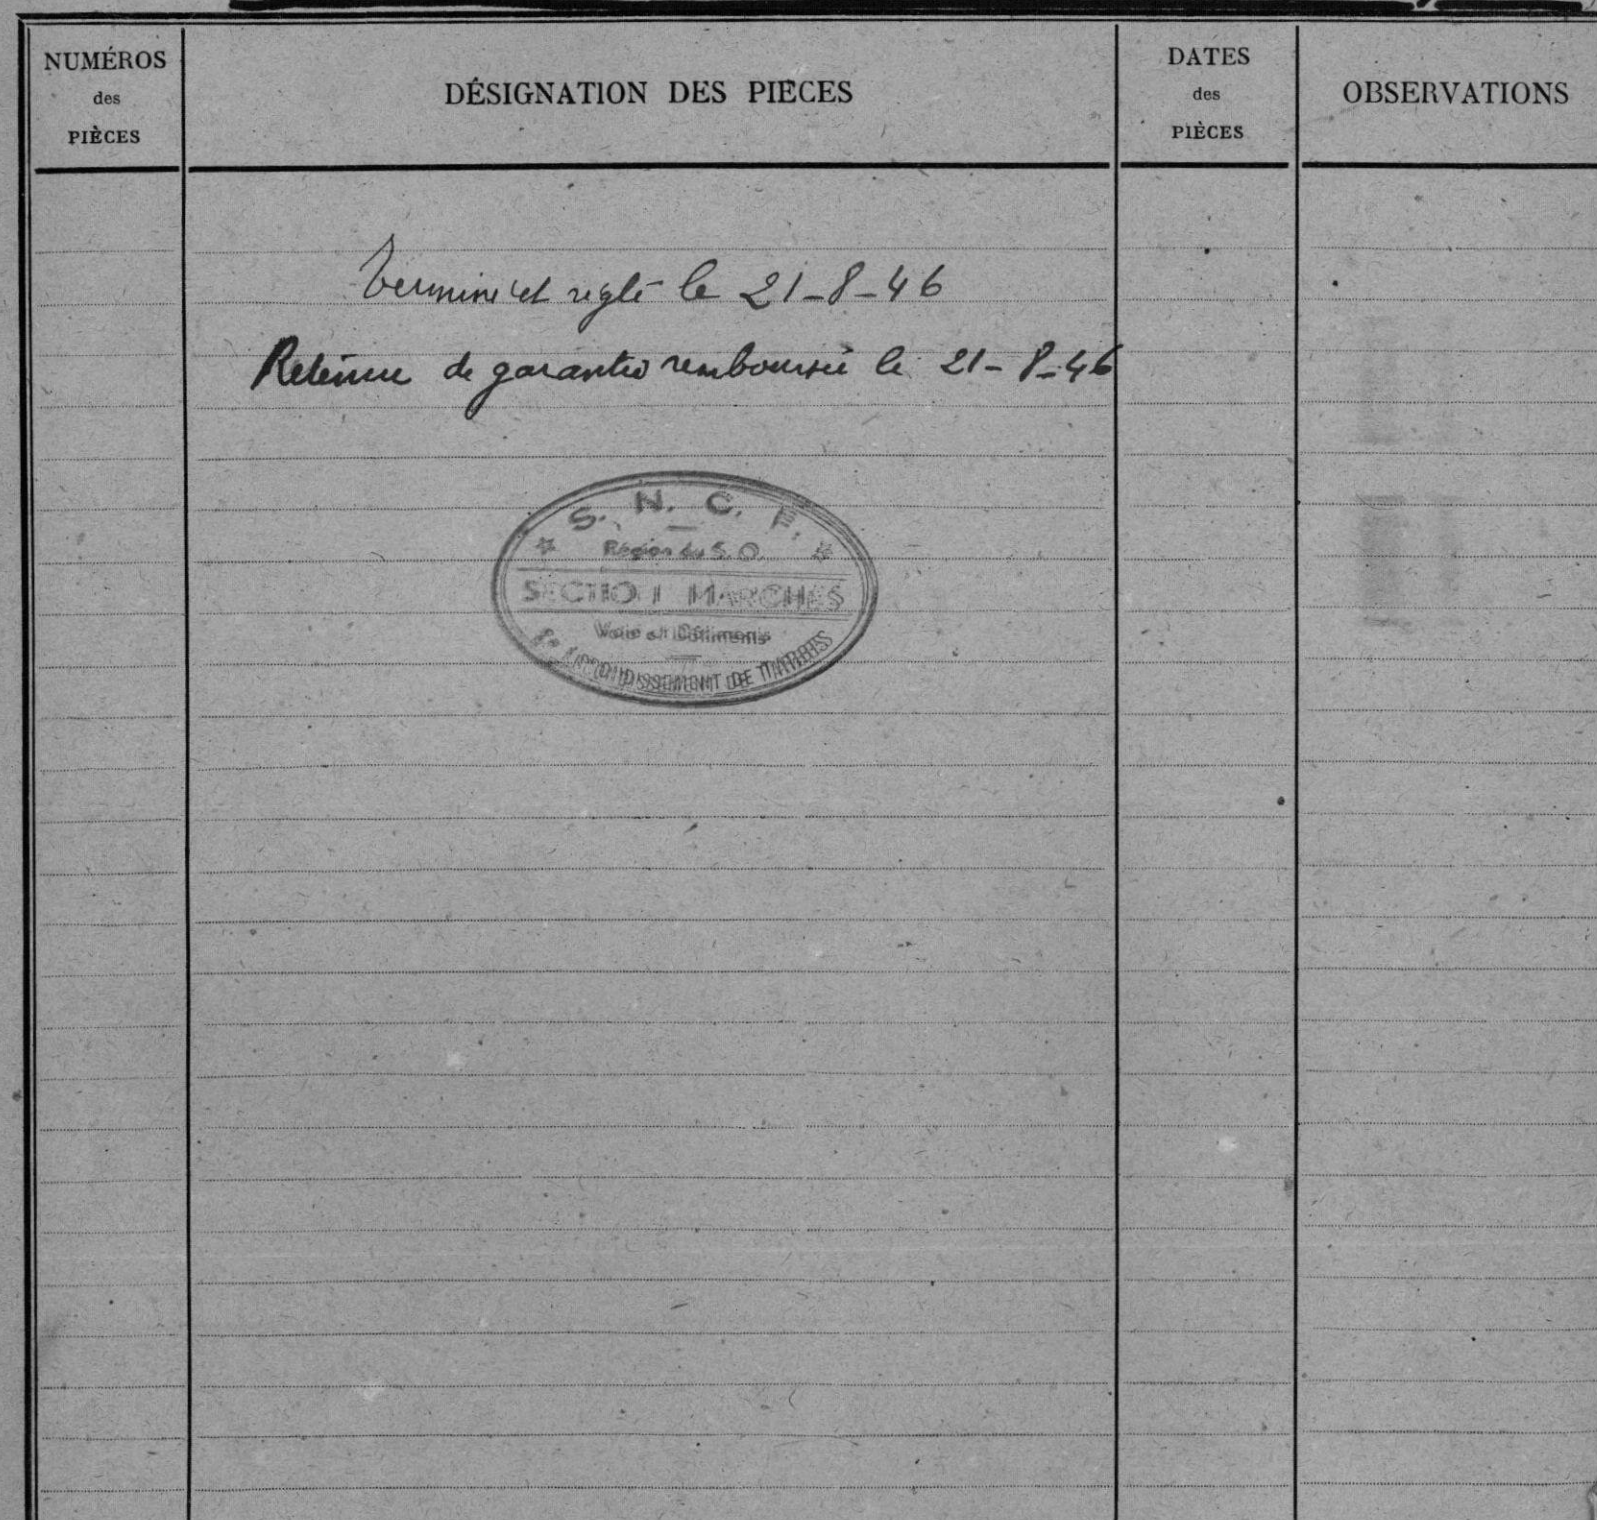 NUMÉROS
des
PIÈCES
DÉSIGNATION DES PIÈCES
DATES
des
PIÈCES
OBSERVATIONS
Terminé et réglé le 21-8-46
Retenue de garantie remboursée le 21-8-46
S. N. C. F.
Région du S. O.
SECTION MARCHES
Voie et Bâtiments
ARRONDISSEMENT DE